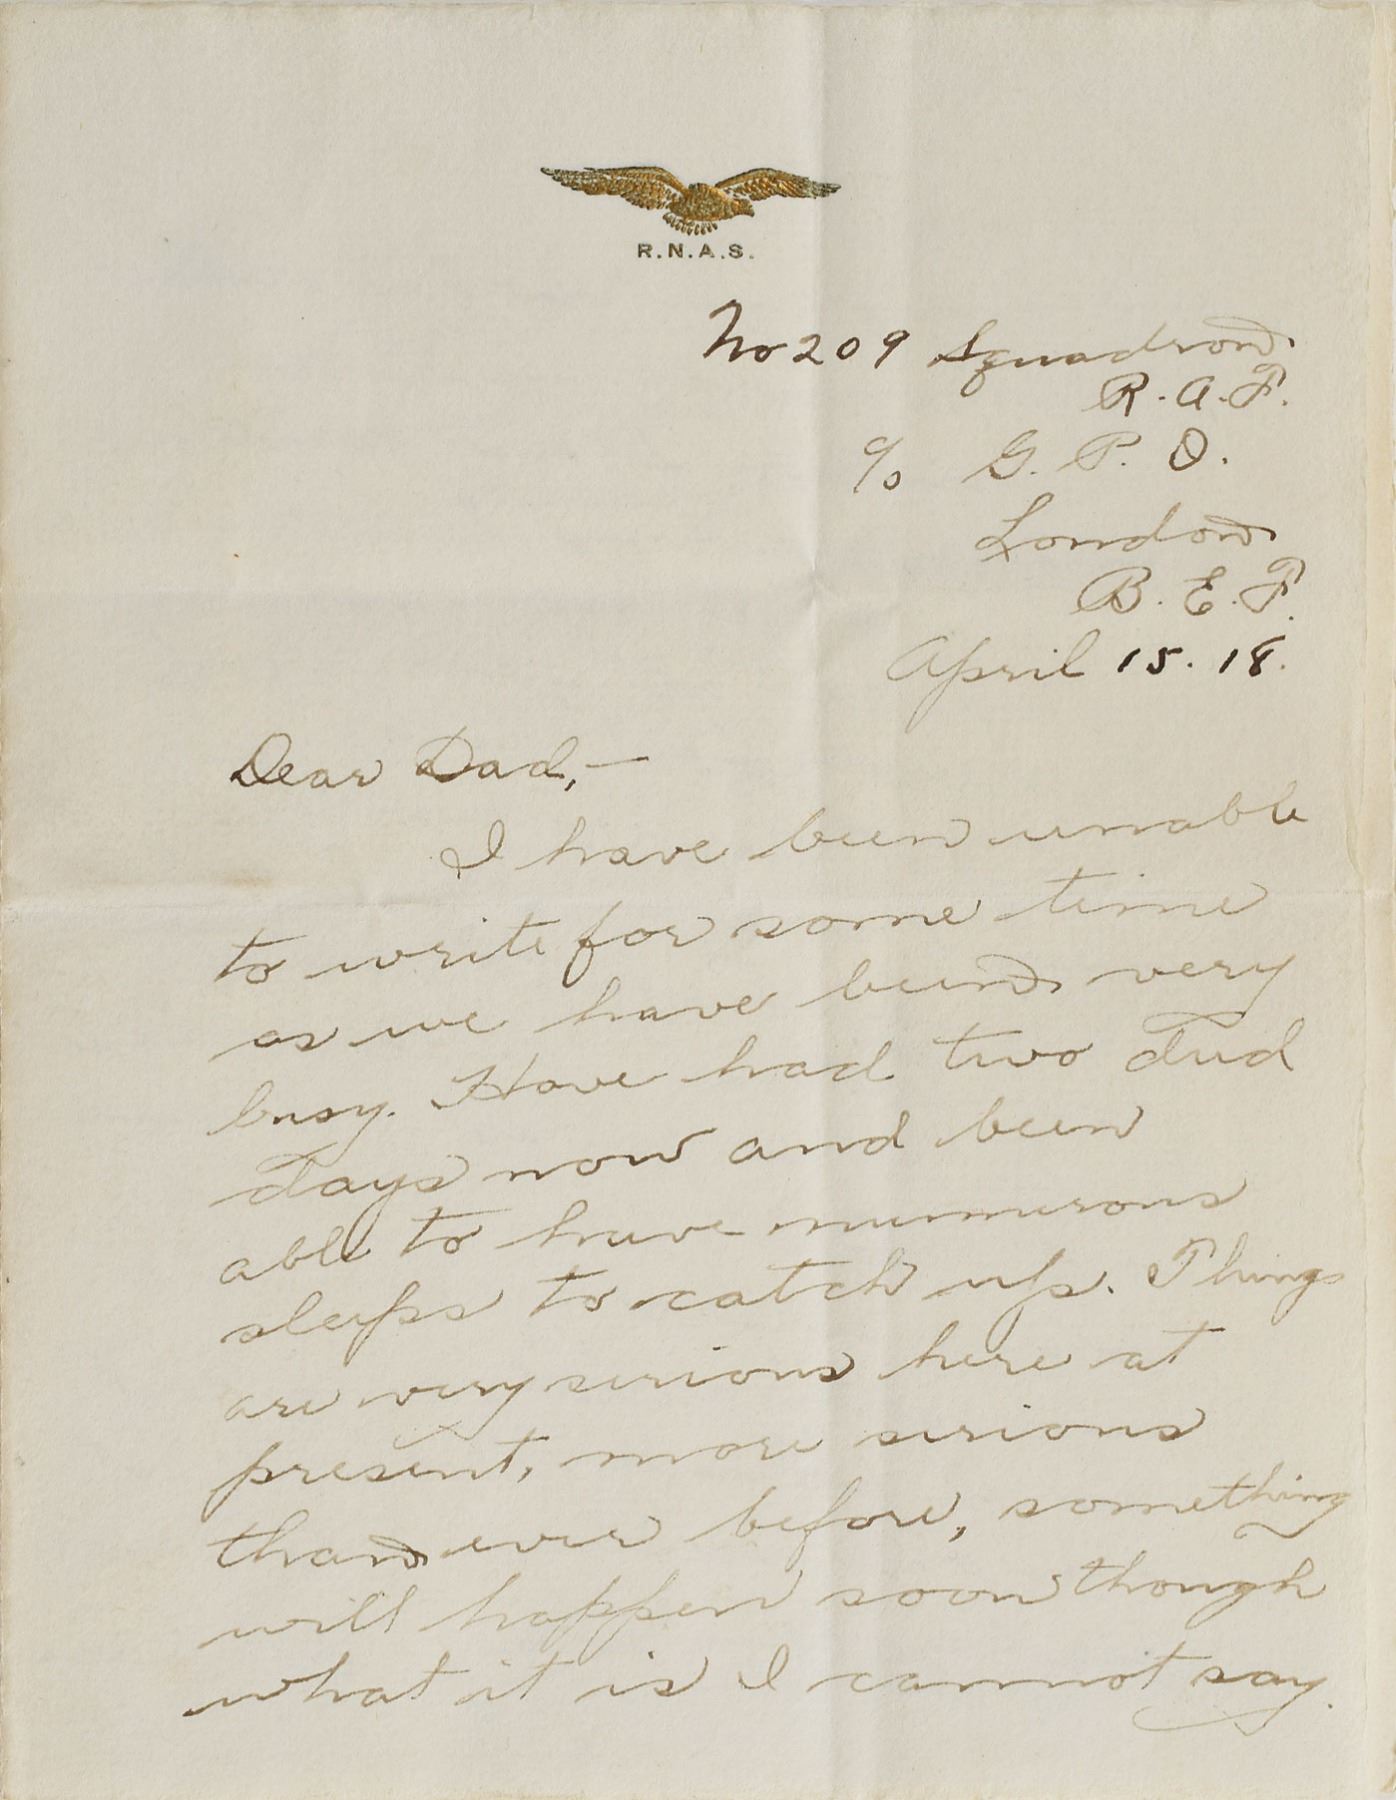 R.N.A.S.
No 209 Squadron.
R.A.F.
c/o G.P.O.
London
B.E.F.
April 15. 18.
Dear Dad,—
I have been unable
to write for some time
as we have been very
busy. Have had two dud
days now and been
able to have numerous
sleeps to catch up. Things
are very serious here at
present, more serious
than ever before, something
will happen soon though
what it is I cannot say.